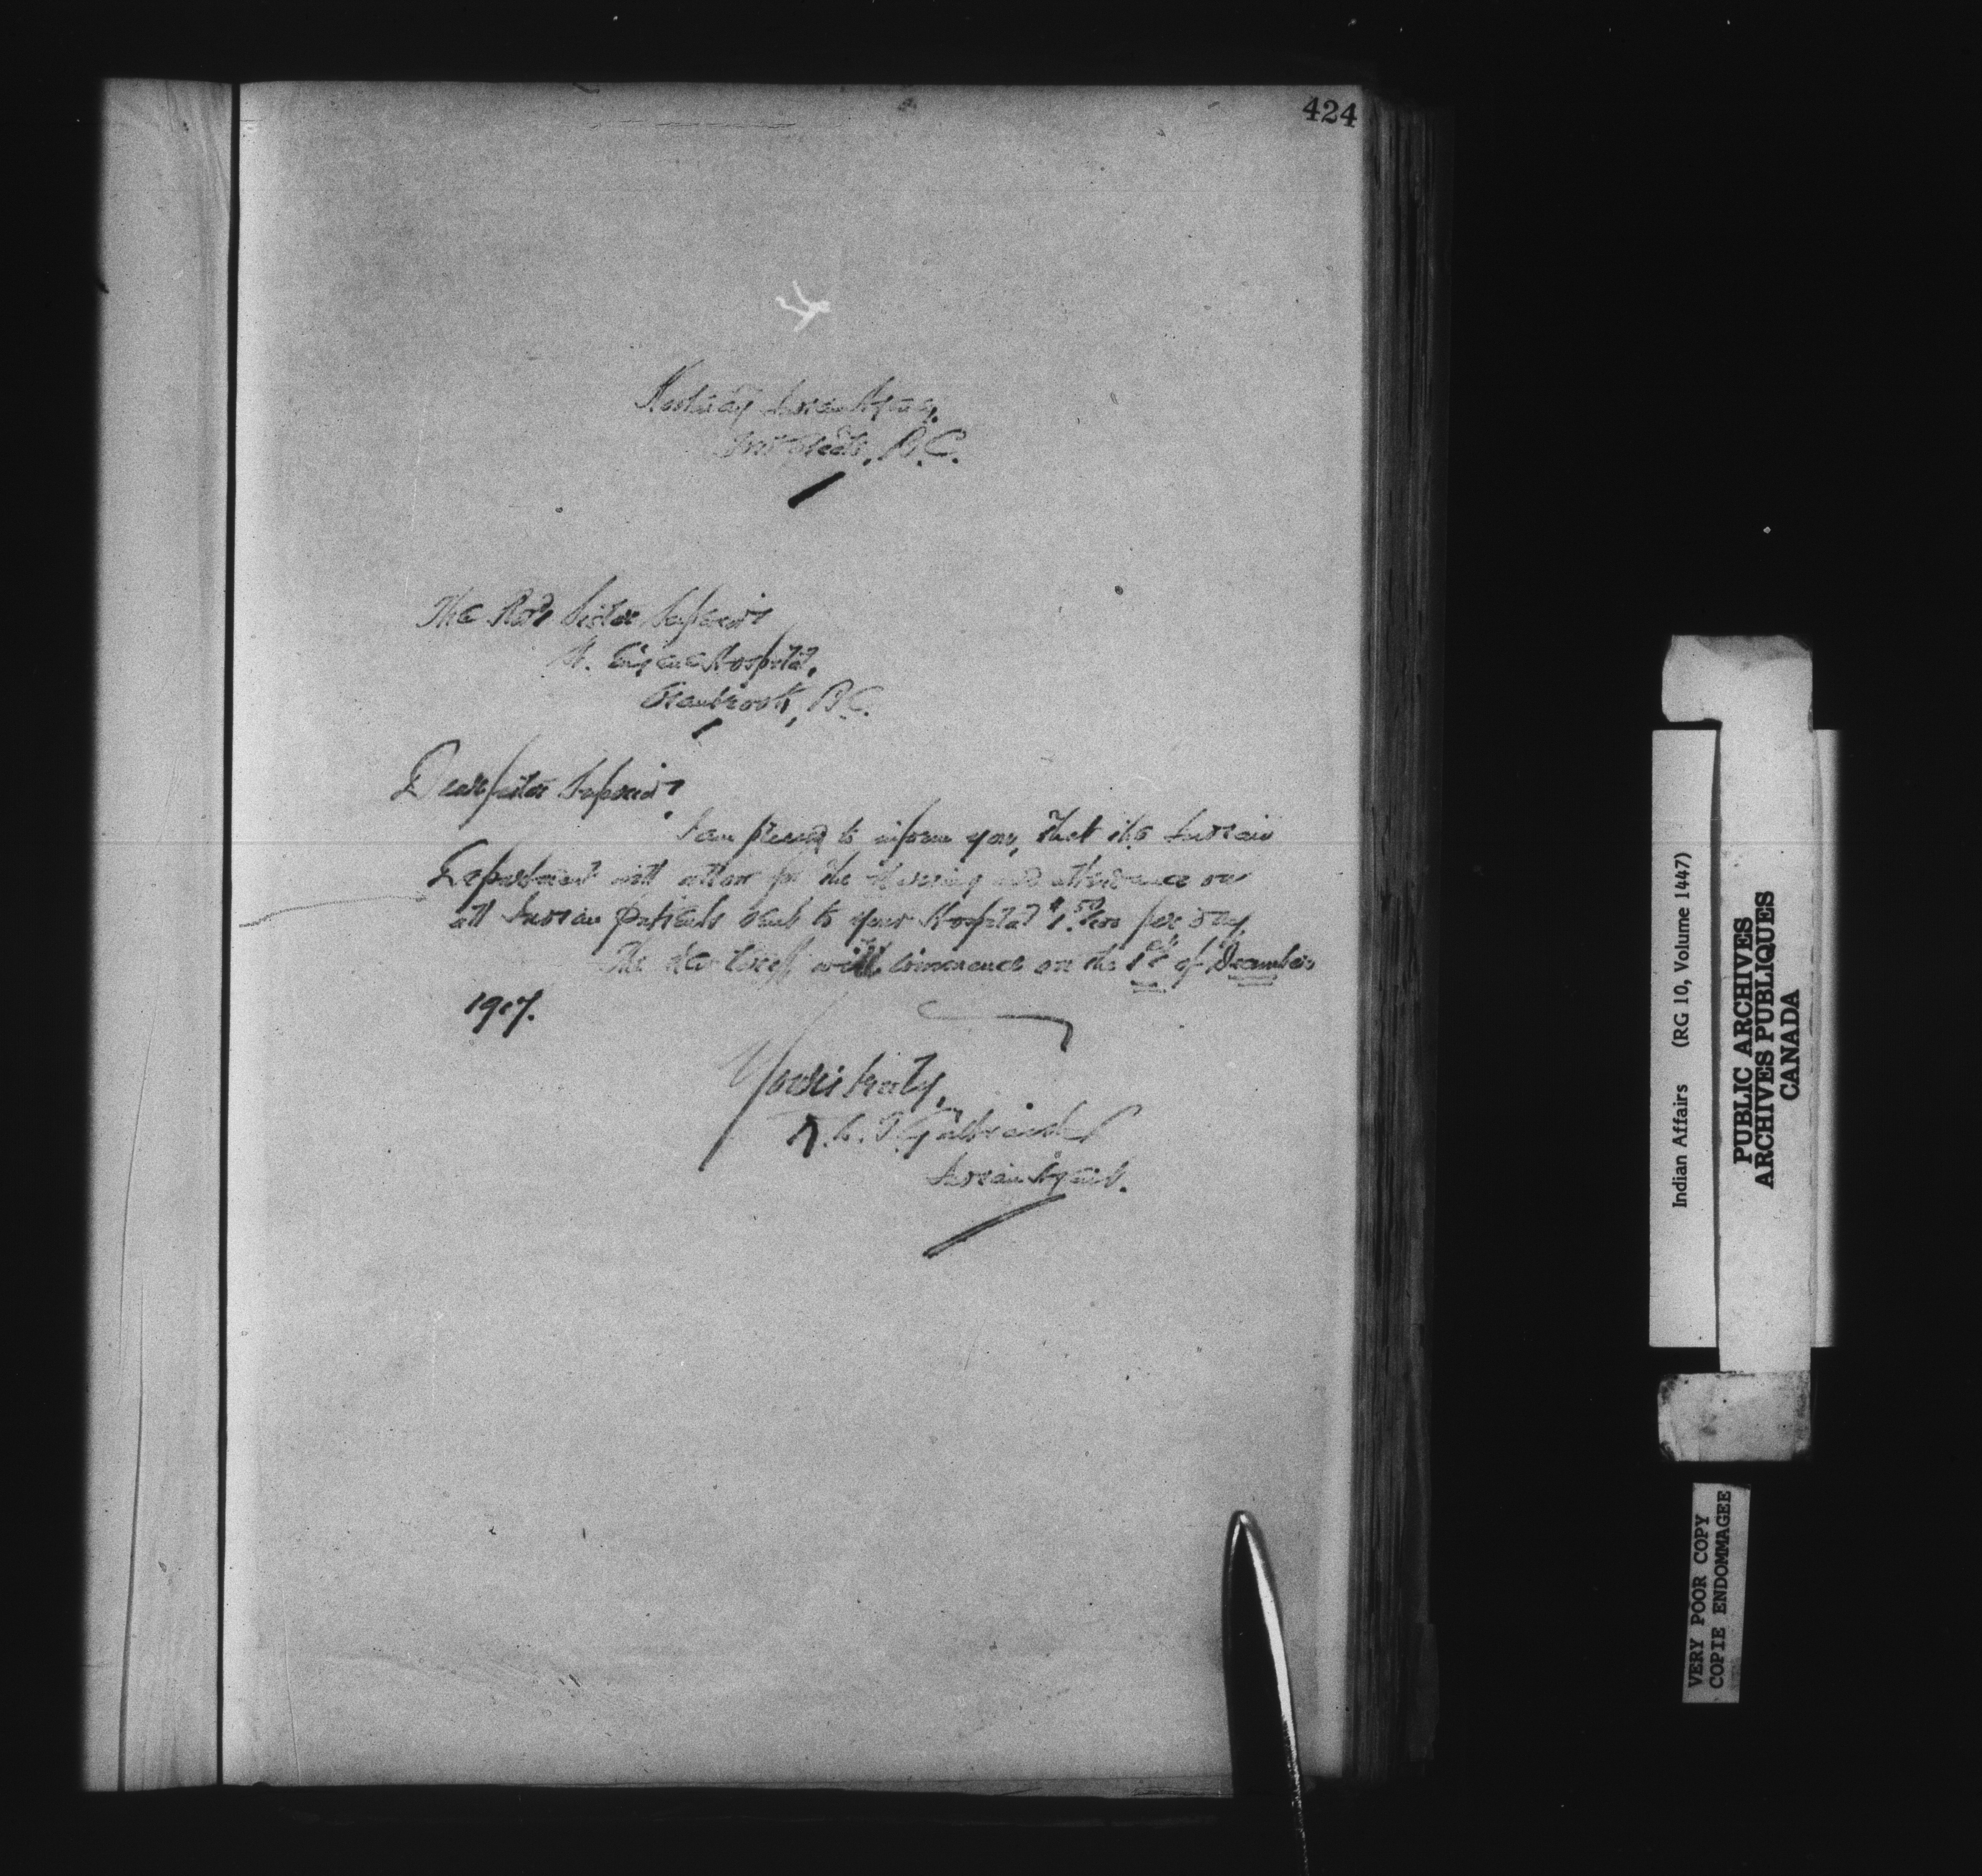 424
Kootenay Indian Agency,
Fort Steele, B.C.
The Revd Sister Superior
St. Eugene Hospital,
Cranbrook, B.C.
Dear Sister Superior,
I am pleased to inform you, that the Indian
Department will allow for the nursing and attendance on
all Indian patients sent to your Hospital $1.50/100 per day.
The new tariff will commence on the 1st of December
1907.
Yours truly,
R. L. T. Galbraith
Indian Agent.
Indian Affairs (RG 10, Volume 1447)
PUBLIC ARCHIVES
ARCHIVES PUBLIQUES
CANADA
VERY POOR COPY
COPIE ENDOMMAGEE